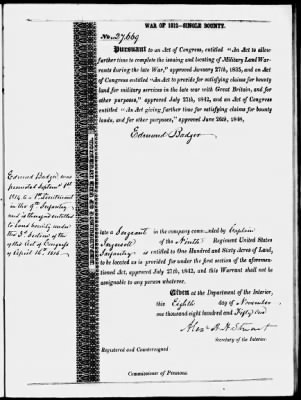 WAR OF 1812—SINGLE BOUNTY.
No. 27,669
Pursuant to an Act of Congress, entitled "An Act to allow
further time to complete the issuing and locating of Military Land Warrants
during the late War," approved January 27th, 1835, and an Act
of Congress entitled "An Act to provide for satisfying claims for bounty
land for military services in the late war with Great Britain, and for
other purposes," approved July 27th, 1842, and an Act of Congress
entitled "An Act giving further time for satisfying claims for bounty
lands, and for other purposes," approved June 26th, 1848,
Edmund Badger
Edmund Badger was
promoted
1814 to Lieutenant
in the 9th Infantry
and is therefore entitled
to Land bounty under
the Section of the
Act of Congress
of April 16th 1816
late a Sergeant in the company commanded by Captain
Ingersoll of the Ninth Regiment United States
Infantry is entitled to One Hundred and Sixty Acres of Land,
to be located as is provided for under the first section of the aforementioned
Act, approved July 27th, 1842, and this Warrant shall not be
assignable to any person whatever.
Given at the Department of the Interior,
this Eighth day of November
one thousand eight hundred and Fifty one
Alex. H. H. Stuart
Secretary of the Interior.
Registered and Countersigned
Commissioner of Pensions.